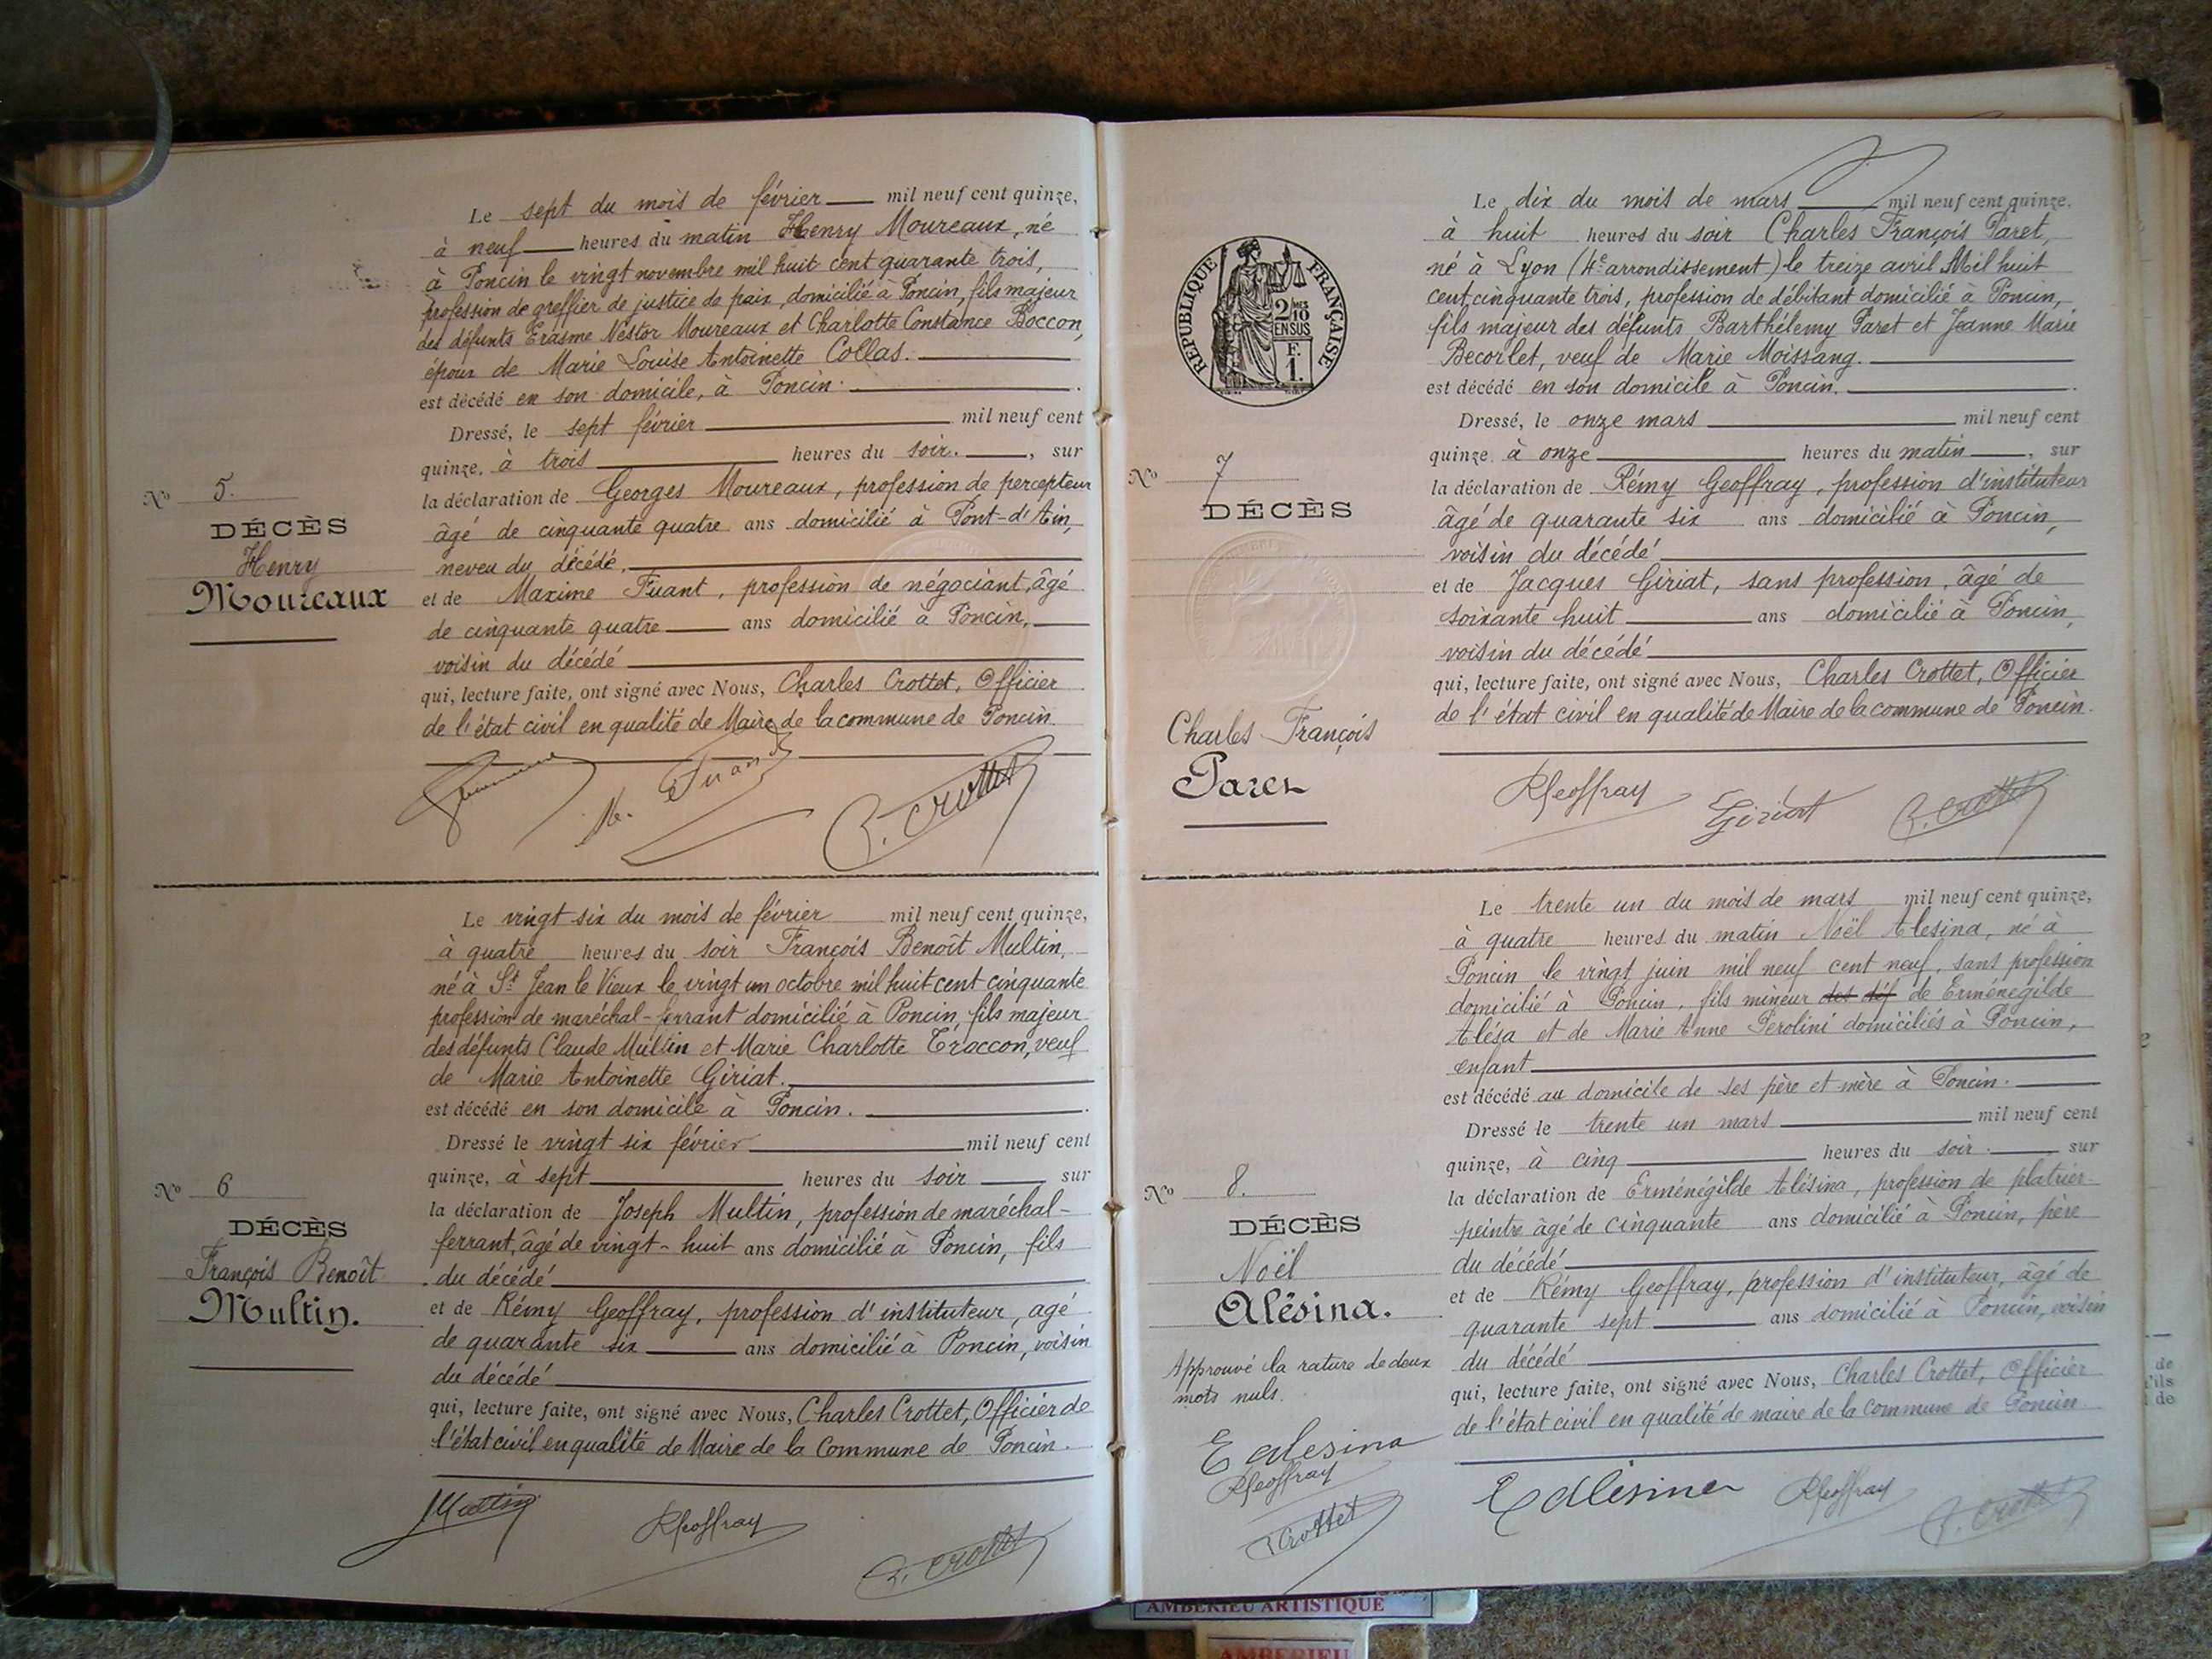 Le sept du mois de février mil neuf cent quinze,
à neuf heures du matin Henry Moureaux, né
à Poncin le vingt novembre mil huit cent quarante trois,
profession de greffier de justice de paix, domicilié à Poncin, fils majeur
des défunts Erasme Nestor Moureaux et Charlotte Constance Boccon,
époux de Marie Louise Antoinette Collas.
est décédé en son domicile, à Poncin.
Dressé, le sept février mil neuf cent
quinze, à trois heures du soir. , sur
la déclaration de Georges Moureaux, profession de percepteur
âgé de cinquante quatre ans domicilié à Pont-d'Ain,
neveu du décédé.
et de Maxime Fuant, profession de négociant, âgé
de cinquante quatre ans domicilié à Poncin,
voisin du décédé
qui, lecture faite, ont signé avec Nous, Charles Crottet, Officier
de l'état civil en qualité de Maire de la commune de Poncin.
No 5.
DÉCÈS
Henry
Moureaux
M. Fuant C. Crottet
Le vingt six du mois de février mil neuf cent quinze,
à quatre heures du soir François Benoît Multin,
né à St Jean le Vieux le vingt un octobre mil huit cent cinquante
profession de maréchal-ferrant domicilié à Poncin, fils majeur
des défunts Claude Multin et Marie Charlotte Traccon, veuf
de Marie Antoinette Giriat.
est décédé en son domicile à Poncin.
Dressé le vingt six février mil neuf cent
quinze, à sept heures du soir sur
la déclaration de Joseph Multin, profession de maréchal-
ferrant, âgé de vingt-huit ans domicilié à Poncin, fils
du décédé
et de Rémy Geoffray, profession d'instituteur, agé
de quarante six ans domicilié à Poncin, voisin
du décédé
qui, lecture faite, ont signé avec Nous, Charles Crottet, Officier de
l'état civil en qualité de Maire de la Commune de Poncin.
No 6
DÉCÈS
François Benoît
Multin.
JMultin RGeoffray C. Crottet
RÉPUBLIQUE FRANÇAISE
2/10 MES
EN SUS
F.
1.
Le dix du mois de mars mil neuf cent quinze,
à huit heures du soir Charles François Paret,
né à Lyon (4e arrondissement) le treize avril Mil huit
cent cinquante trois, profession de débitant domicilié à Poncin,
fils majeur des défunts Barthélemy Paret et Jeanne Marie
Becorlet, veuf de Marie Moissang.
est décédé en son domicile à Poncin.
Dressé, le onze mars mil neuf cent
quinze à onze heures du matin , sur
la déclaration de Rémy Geoffray, profession d'instituteur
âgé de quarante six ans domicilié à Poncin,
voisin du décédé
et de Jacques Giriat, sans profession, âgé de
soixante huit ans domicilié à Poncin,
voisin du décédé
qui, lecture faite, ont signé avec Nous, Charles Crottet, Officier
de l'état civil en qualité de Maire de la commune de Poncin.
No 7
DÉCÈS
Charles François
Paret
RGeoffray Giriat C. Crottet
Le trente un du mois de mars mil neuf cent quinze,
à quatre heures du matin Noël Alesina, né à
Poncin le vingt juin mil neuf cent neuf, sans profession
domicilié à Poncin, fils mineur des déf de Erménégilde
Alésa et de Marie Anne Perolini domiciliés à Poncin,
enfant
est décédé au domicile de ses père et mère à Poncin.
Dressé le trente un mars mil neuf cent
quinze, à cinq heures du soir. sur
la déclaration de Erménégilde Alésina, profession de platrier-
peintre âgé de cinquante ans domicilié à Poncin, père
du décédé
et de Rémy Geoffray, profession d'instituteur, âgé de
quarante sept ans domicilié à Poncin, voisin
du décédé
qui, lecture faite, ont signé avec Nous, Charles Crottet, Officier
de l'état civil en qualité de maire de la commune de Poncin.
No 8.
DÉCÈS
Noël
Alésina.
Approuvé la rature de deux
mots nuls.
E Alesina
RGeoffray
C Crottet
E Alesina RGeoffray C. Crottet
AMBERIEU ARTISTIQUE
AMBERIEU